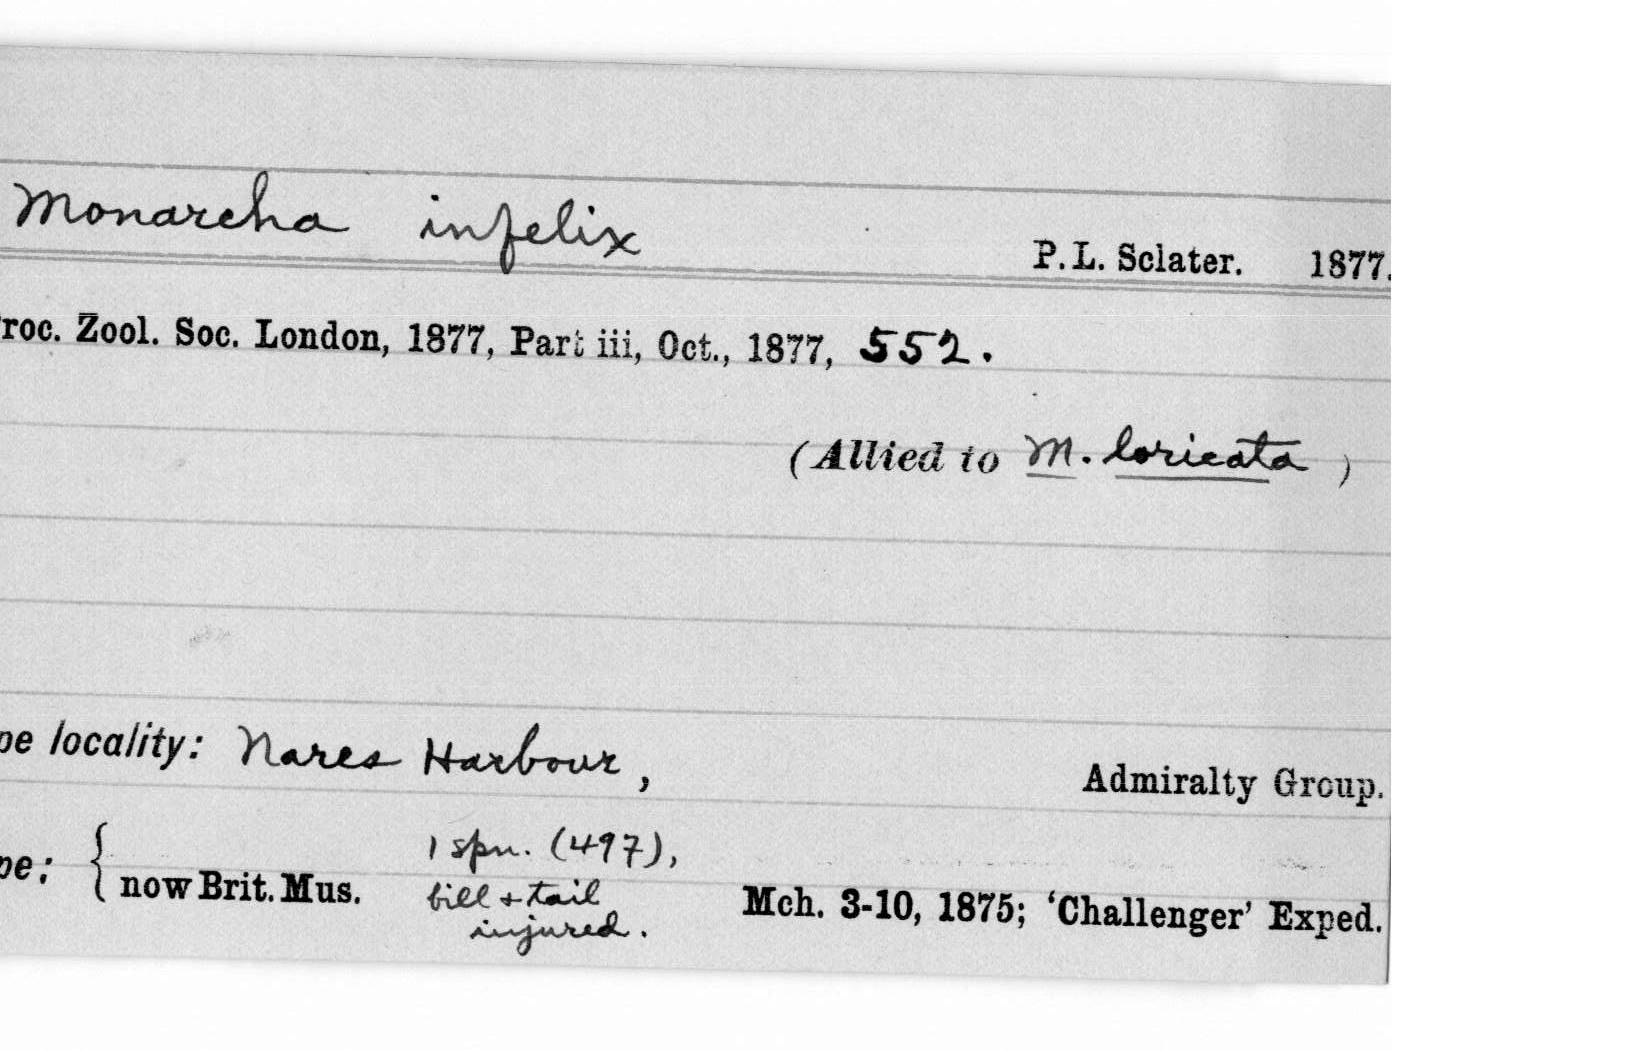 Monarcha infelix P. L. Sclater. 1877.
roc. Zool. Soc. London, 1877, Part iii, Oct., 1877, 552.
(Allied to M. loricata )
pe locality: Nares Harbour, Admiralty Group.
1 spn. (497),
pe: { now Brit. Mus. bill + tail Mch. 3-10, 1875; ‘Challenger’ Exped.
injured.